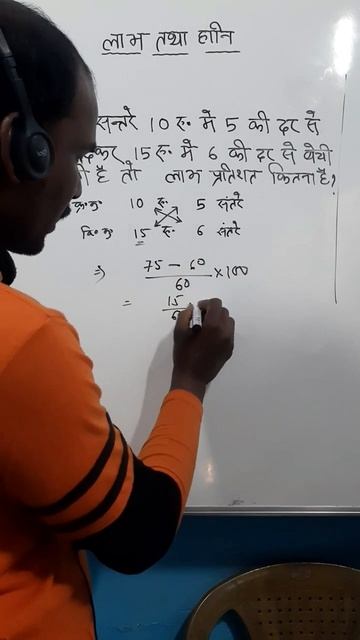 लाभ तथा हानि
सन्तरे 10 रु. में 5 की दर से
15 रु. में 6 की दर से बेची
है तो लाभ प्रतिशत कितना है?
क्र.मू. 10 रु. 5 संतरे
वि.मू. 15 रु. 6 संतरे
⇒ 75 - 60
60 ×100
= 15